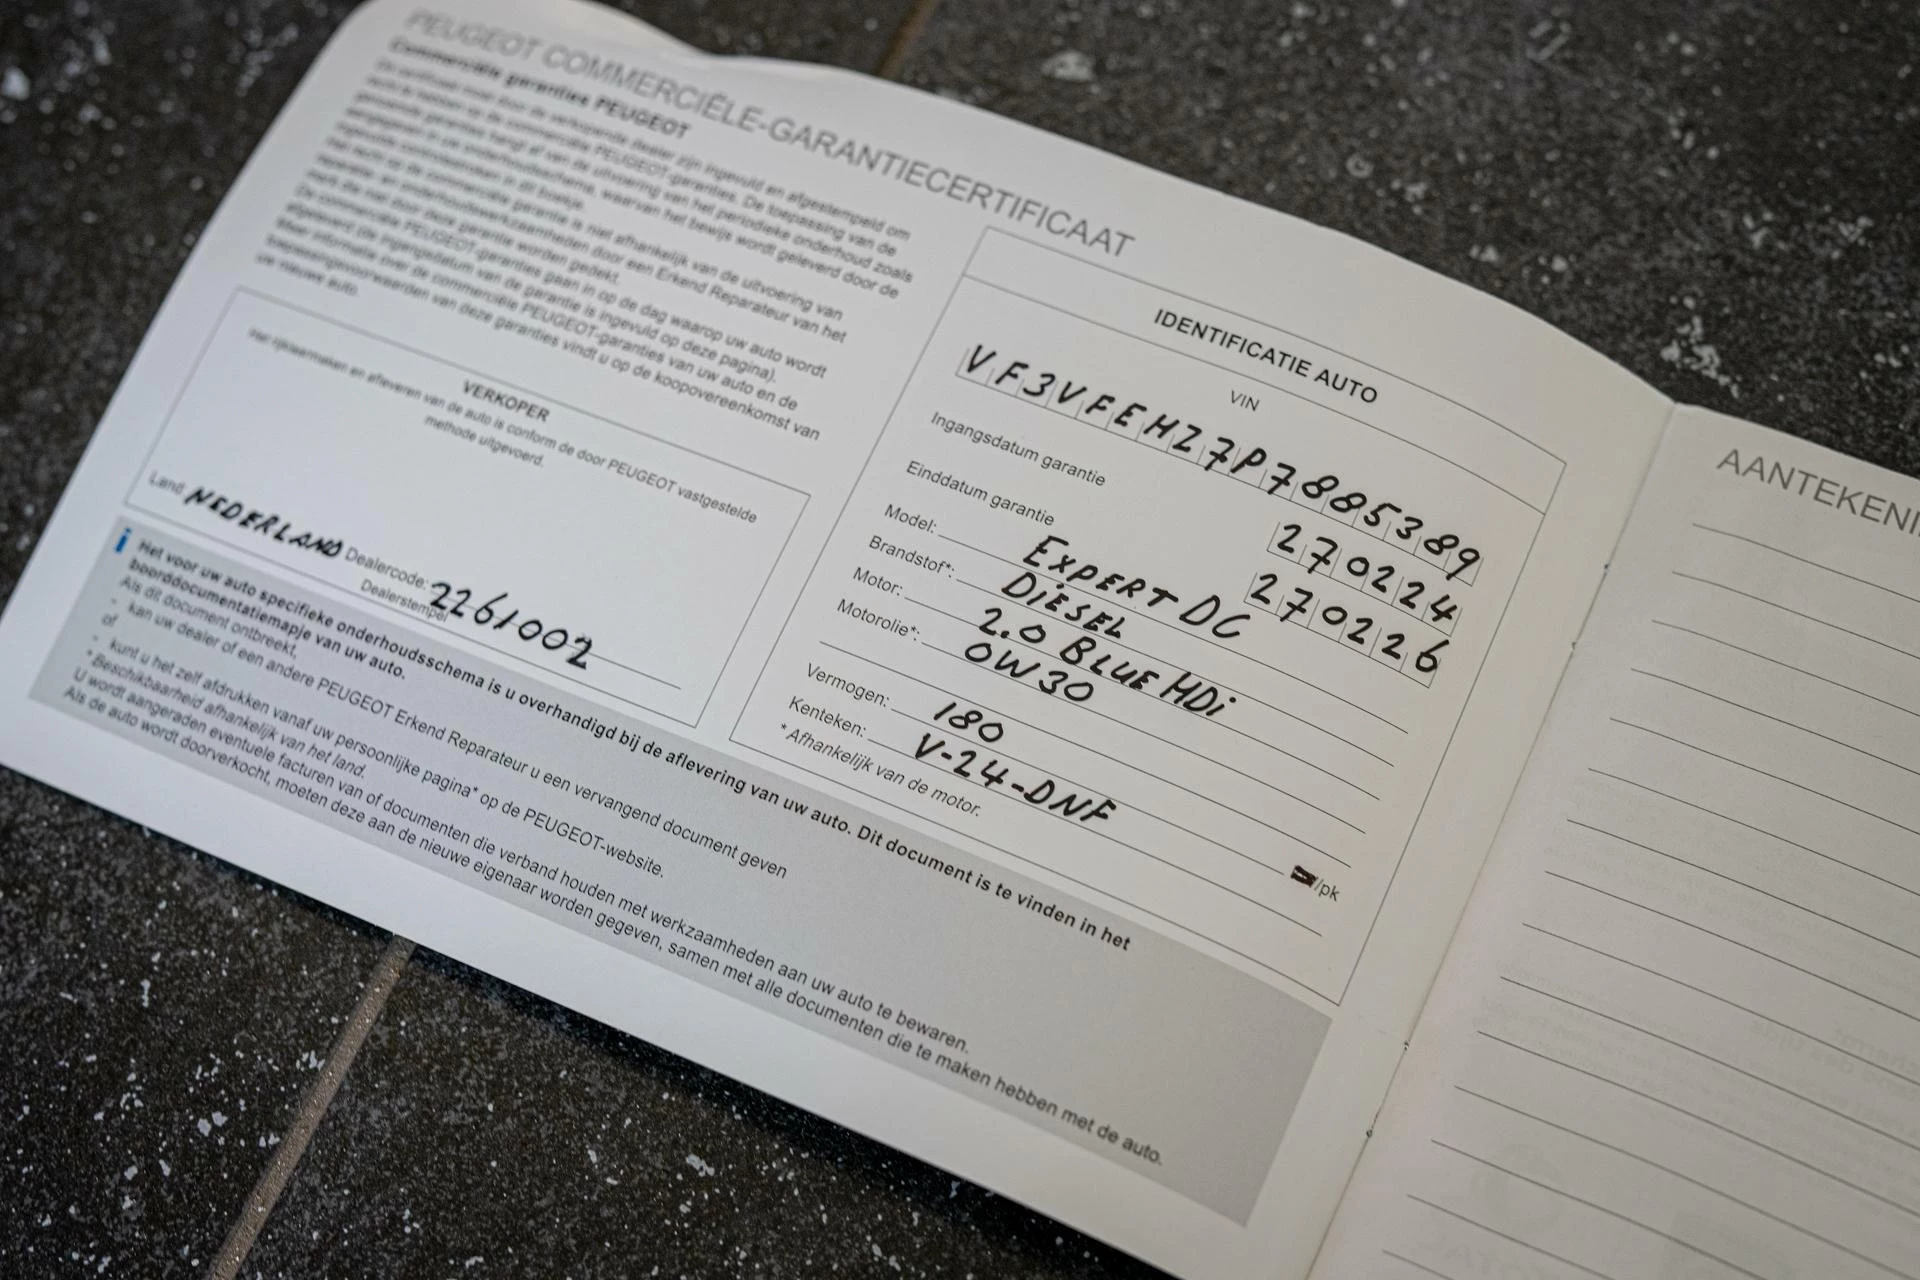 PEUGEOT COMMERCIËLE-GARANTIECERTIFICAAT
Commerciële garanties PEUGEOT
Dit certificaat moet door de verkopende dealer zijn ingevuld en afgestempeld om
recht te hebben op de commerciële PEUGEOT-garanties. De toepassing van de
genoemde garanties hangt af van de uitvoering van het periodieke onderhoud zoals
aangegeven in uw onderhoudsschema, waarvan het bewijs wordt geleverd door de
ingevulde controlestroken in dit boekje.
Het recht op de commerciële garantie is niet afhankelijk van de uitvoering van
reparatie- en onderhoudswerkzaamheden door een Erkend Reparateur van het
merk die niet door deze garantie worden gedekt.
De commerciële PEUGEOT-garanties gaan in op de dag waarop uw auto wordt
afgeleverd (de ingangsdatum van de garantie is ingevuld op deze pagina).
Meer informatie over de commerciële PEUGEOT-garanties van uw auto en de
toepassingsvoorwaarden van deze garanties vindt u op de koopovereenkomst van
uw nieuwe auto.
VERKOPER
Het rijklaarmaken en afleveren van de auto is conform de door PEUGEOT vastgestelde
methode uitgevoerd.
Land NEDERLAND Dealercode: 2261002
Dealerstempel
i Het voor uw auto specifieke onderhoudsschema is u overhandigd bij de aflevering van uw auto. Dit document is te vinden in het
boorddocumentatiemapje van uw auto.
Als dit document ontbreekt,
- kan uw dealer of een andere PEUGEOT Erkend Reparateur u een vervangend document geven
of
- kunt u het zelf afdrukken vanaf uw persoonlijke pagina* op de PEUGEOT-website.
* Beschikbaarheid afhankelijk van het land.
U wordt aangeraden eventuele facturen van of documenten die verband houden met werkzaamheden aan uw auto te bewaren.
Als de auto wordt doorverkocht, moeten deze aan de nieuwe eigenaar worden gegeven, samen met alle documenten die te maken hebben met de auto.
IDENTIFICATIE AUTO
VIN
VF3VFEHZ7P7885389
Ingangsdatum garantie 270224
Einddatum garantie 270226
Model: EXPERT DC
Brandstof*: DIESEL
Motor: 2.0 BLUE HDi
Motorolie*: 0W30
Vermogen: 180 /pk
Kenteken: V-24-DNF
* Afhankelijk van de motor.
AANTEKENI